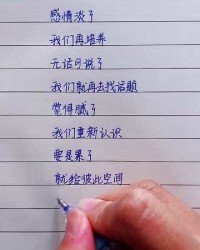 感情淡了
我们再培养
无话可说了
我们就再去找话题
觉得腻了
我们重新认识
要是累了
就给彼此空间